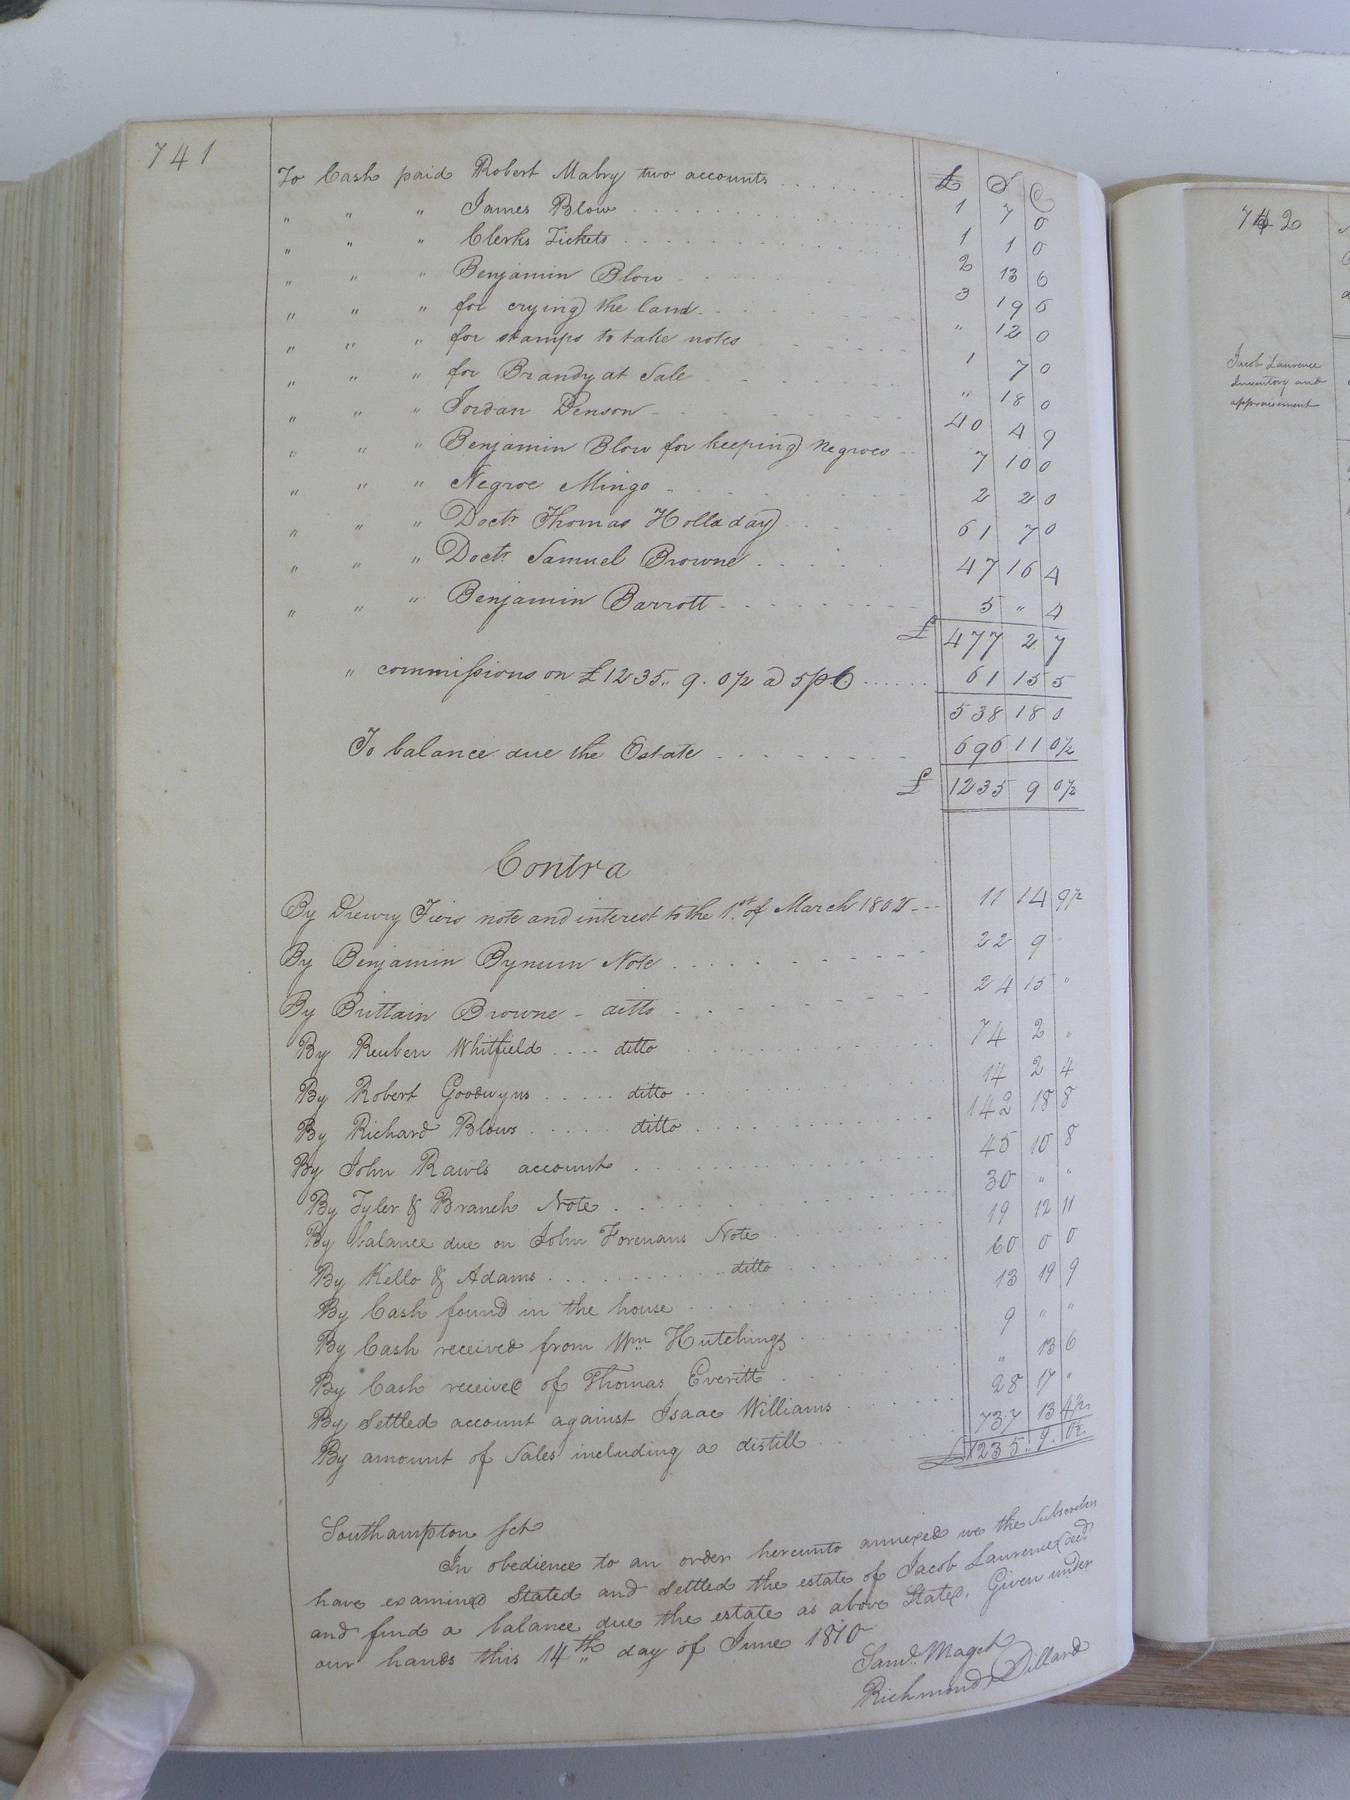 741
£ S C
To Cash paid Robert Mabry two accounts 1 7 0
" " " James Blow 1 1 0
" " " Clerks Tickets 2 13 6
" " " Benjamin Blow 3 19 6
" " " for crying the land " 12 0
" " " for stamps to take notes 1 7 0
" " " for Brandy at Sale " 18 0
" " " Jordan Denson 40 4 9
" " " Benjamin Blow for keeping Negroes 7 10 0
" " " Negroe Mingo 2 2 0
" " " Doctr Thomas Holladay 61 7 0
" " " Doctr Samuel Browne 47 16 4
" " " Benjamin Barrott 5 " 4
£ 477 2 7
" commissions on £1235.. 9. 0½ a 5 pC 61 15 5
538 18 0
To balance due the Estate 696 11 0½
£ 1235 9 0½
Contra
By Drewry note and interest to the 1st of March 1802 11 14 9½
By Benjamin Bynum Note 22 9
By Brittain Browne - ditto 24 15 "
By Reuben Whitfield ditto 74 2 "
By Robert Goodwyns ditto 14 2 4
By Richard Blows ditto 142 18 8
By John Rawls account 45 10 8
By Tyler & Branch Note 30 " "
By balance due on John Foremans Note 19 12 11
By Kello & Adams ditto 60 0 0
By Cash found in the house 13 19 9
By Cash received from Wm Hutchings 9 " "
By Cash received of Thomas Everitt " 13 6
By Settled account against Isaac Williams 28 17 "
By amount of Sales including a distill 737 13 4½
£ 1235.. 9. 0½
Southampton Sct
In obedience to an order hereunto annexed we the Subscribers
have examined Stated and settled the estate of Jacob Laurence decd
and find a balance due the estate as above Stated. Given under
our hands this 14th day of June 1810
Saml. Maget
Richmond Dillard
742
Jacob Laurence
Inventory and
appraisement